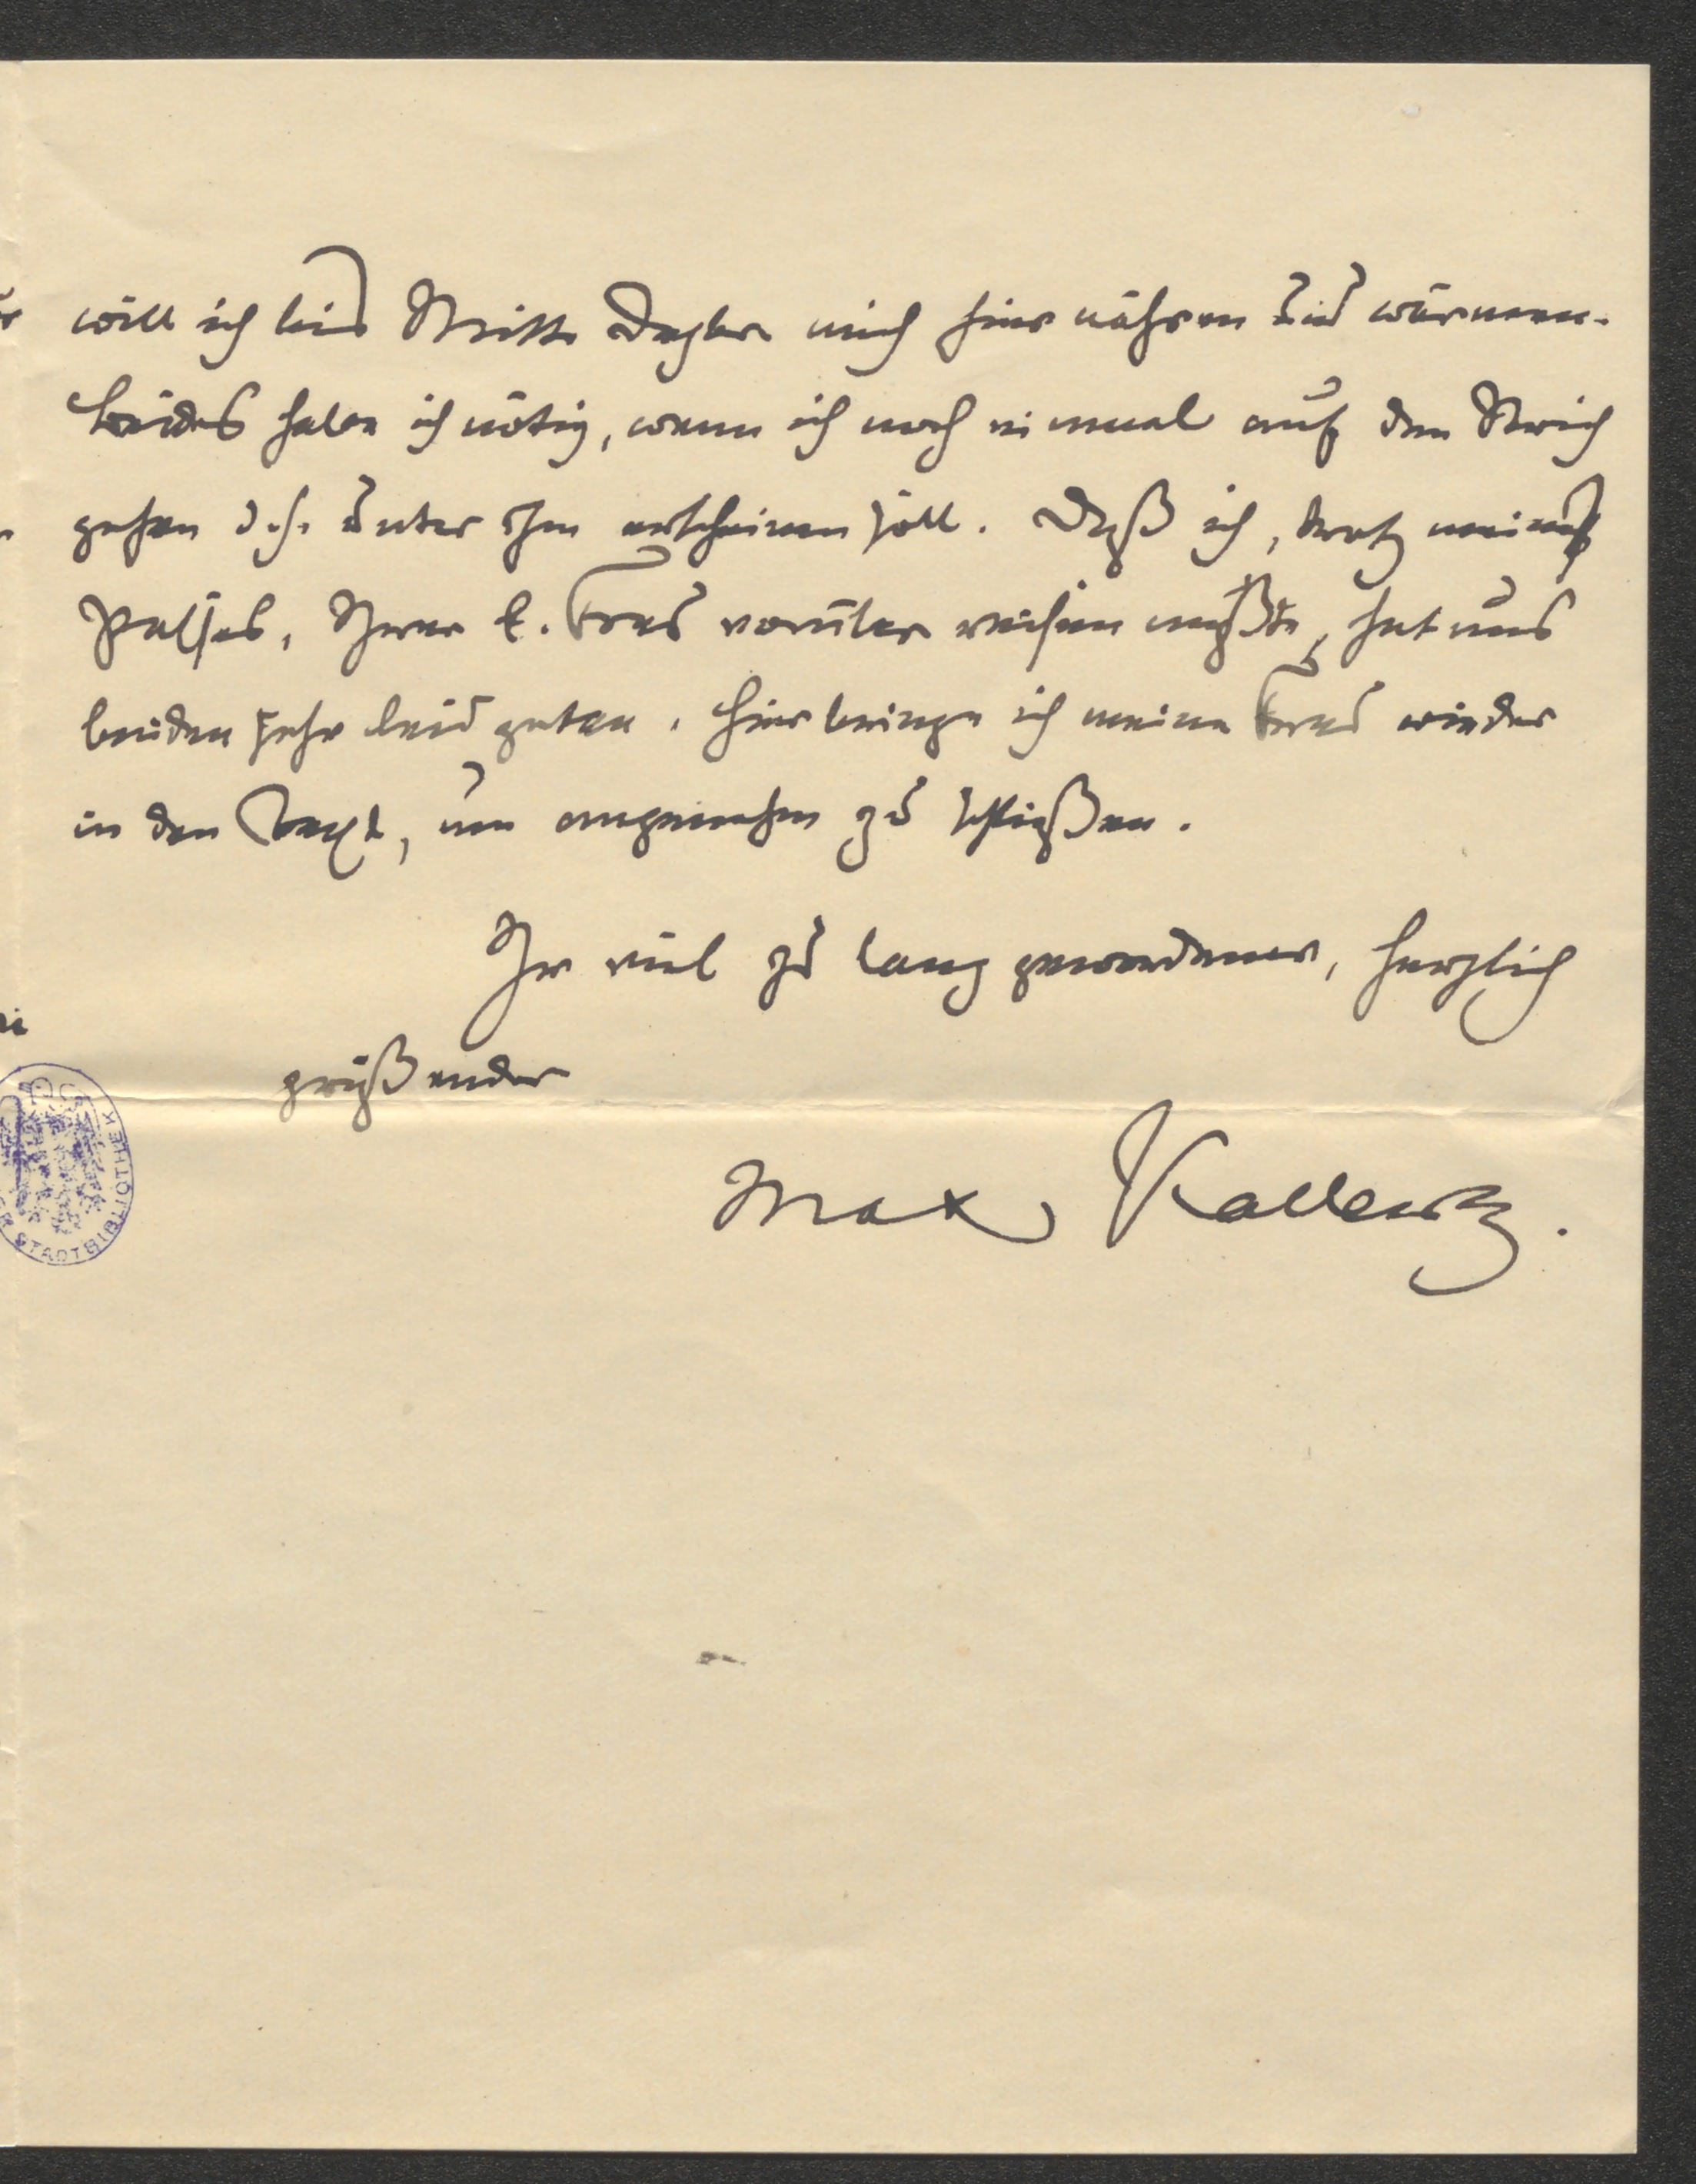 will ich bis Mitte Dezber mich hier nähren und wärmen.
Beides habe ich nötig, wenn ich noch einmal auf den Strich
gehen d. h. unter ihm erscheinen soll. Daß ich, trotz meines
Passes, Ihrer l. Frau vorüber reisen mußte, hat uns
beiden sehr leid getan. Hier bringe ich meine Frau wieder
in den Text, um angenehm zu schließen.
Ihr viel zu lang gewordener, herzlich
grüßender
Max Kalbeck.
STADTBIBLIOTHEK